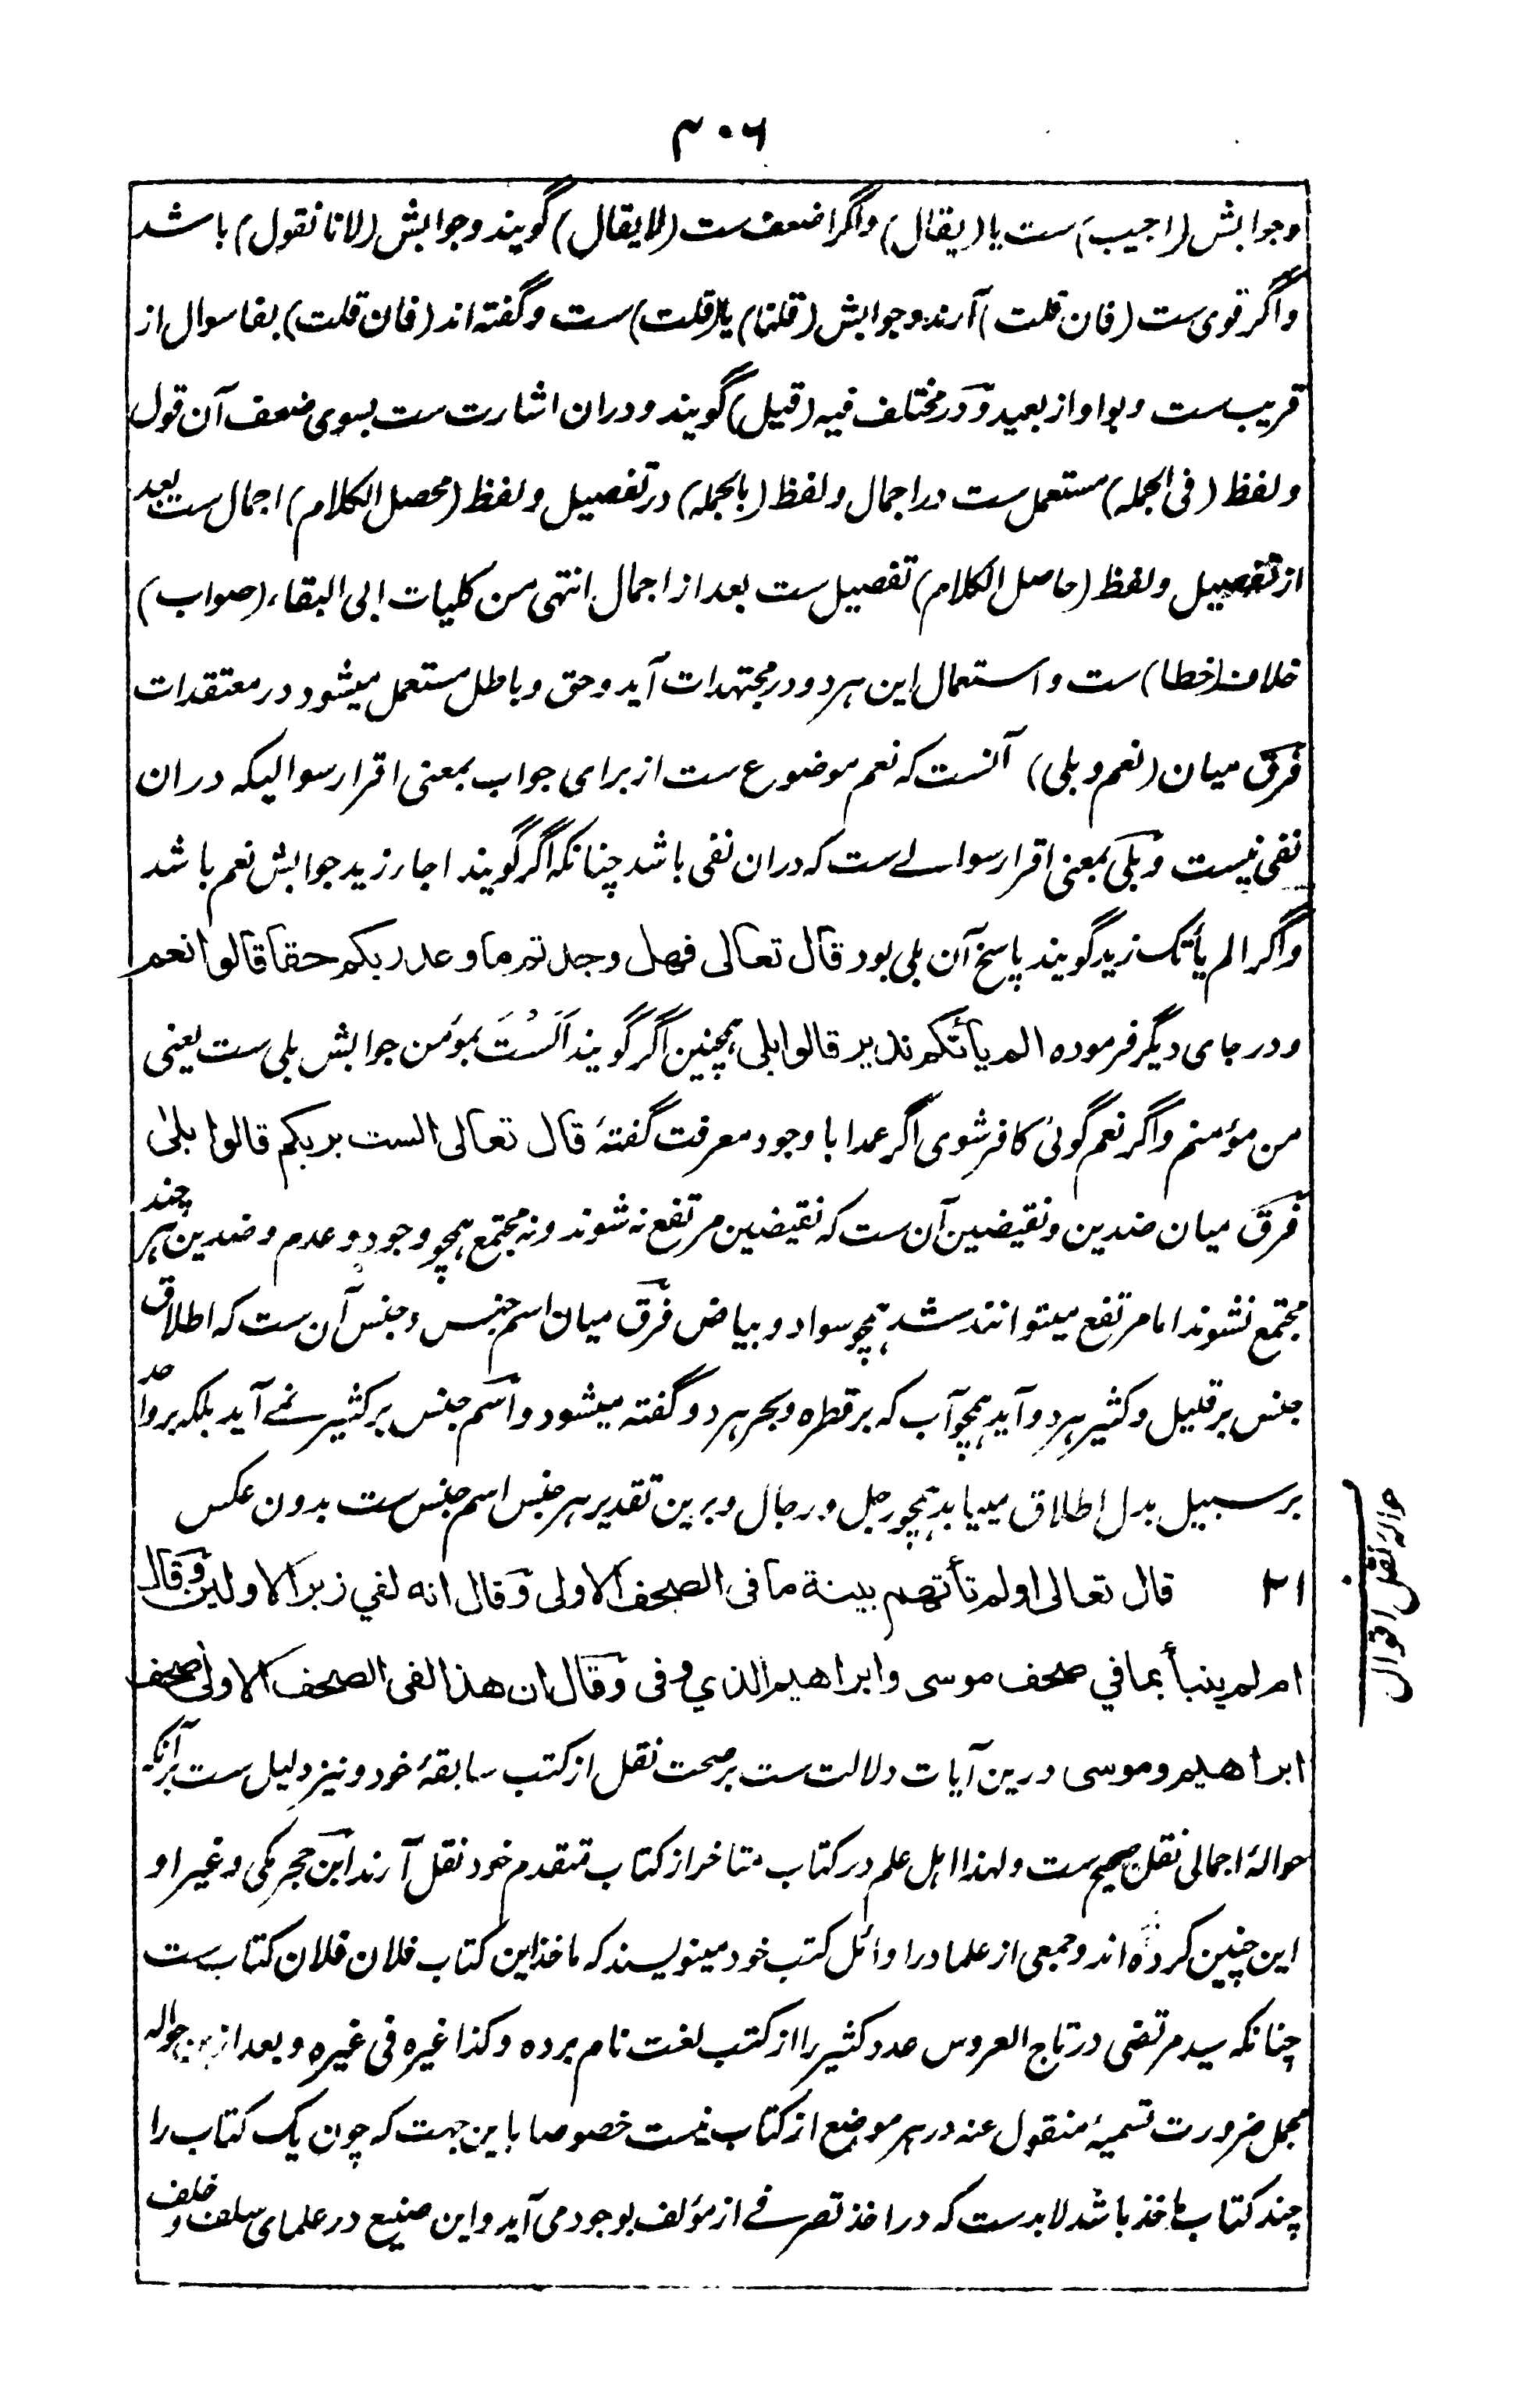 ۳۰۶
وجوابش (اجیب) ست یا (یقال) واگر اضعف ست (لا یقال) گویند وجوابش (لانا نقول) باشد
واگر قوی ست (فان قلت) آرند وجوابش (قلنا) یا (قلت) ست وگفته اند (فان قلت) بفا سوال از
قریب ست وبواو از بعید ودر مختلف فیه (قیل) گویند ودران اشارت ست بسوی ضعف آن قول
ولفظ (فی الجمله) مستعمل ست در اجمال ولفظ (بالجمله) در تفصیل ولفظ (محصل الکلام) اجمال ست بعد
از تفصیل ولفظ (حاصل الکلام) تفصیل ست بعد از اجمال انتهی من کلیات ابی البقاء، (صواب)
خلاف (خطا) ست واستعمال این هردو در مجتهدات آید وحق وباطل مستعمل میشود در معتقدات
فرق میان (نعم وبلی) آنست که نعم موضوع ست از برای جواب بمعنی اقرار سوالیکه دران
نفی نیست وبلی بمعنی اقرار سوالے ست که دران نفی باشد چنانکه اگر گویند اجاء زید جوابش نعم باشد
واگر الم یأتک زید گویند پاسخ آن بلی بود قال تعالی فهل وجدتم ما وعد ربکم حقا قالوا نعم
ودر جای دیگر فرموده الم یأتکم نذیر قالوا بلی همچنین اگر گویند اَلَسْتَ بمؤمن جوابش بلی ست یعنی
من مؤمنم واگر نعم گوئی کافر شوی اگر عمدا با وجود معرفت گفتۀ قال تعالی الست بربکم قالوا بلیٰ
فرق میان ضدین ونقیضین آن ست که نقیضین مرتفع نه شوند ونه مجتمع همچو وجود وعدم وضدین هر چند
مجتمع نشوند اما مرتفع میتوانند شد همچو سواد وبیاض فرق میان اسم جنس وجنس آن ست که اطلاق
جنس بر قلیل وکثیر هردو آید همچو آب که بر قطره وبحر هردو گفته میشود واسم جنس بر کثیر نمے آید بلکه بر واحد
بر سبیل بدل اطلاق مییابد همچو رجل ورجال وبرین تقدیر هر جنس اسم جنس ست بدون عکس
۲۱ قال تعالی اولم تأتهم بینة ما فی الصحف الاولی وقال انه لفی زبر الاولین وقال
ام لم ینبأ بما فی صحف موسی وابراهیم الذی وفی وقال ان هذا لفی الصحف الاولی صحف
ابراهیم وموسی درین آیات دلالت ست بر صحت نقل از کتب سابقۀ خود ونیز دلیل ست بر آنکه
حوالۀ اجمالی نقل صحیح ست ولهذا اهل علم در کتاب متاخر از کتاب متقدم خود نقل آرند ابن حجر مکی وغیر او
این چنین کرده اند وجمعی از علما در اوائل کتب خود مینویسند که ماخذ این کتاب فلان فلان کتاب ست
چنانکه سید مرتضی در تاج العروس عدد کثیر را از کتب لغت نام برده وکذا غیره فی غیره وبعد ازین حواله
مجمل ضرورت تسمیۀ منقول عنه در هر موضع از کتاب نیست خصوصا باین جهت که چون یک کتاب را
چند کتاب ماخذ باشد لابدست که در اخذ تصرفے از مؤلف بوجود می آید واین صنیع در علمای سلف وخلف
حوالۀ نقل اقوال